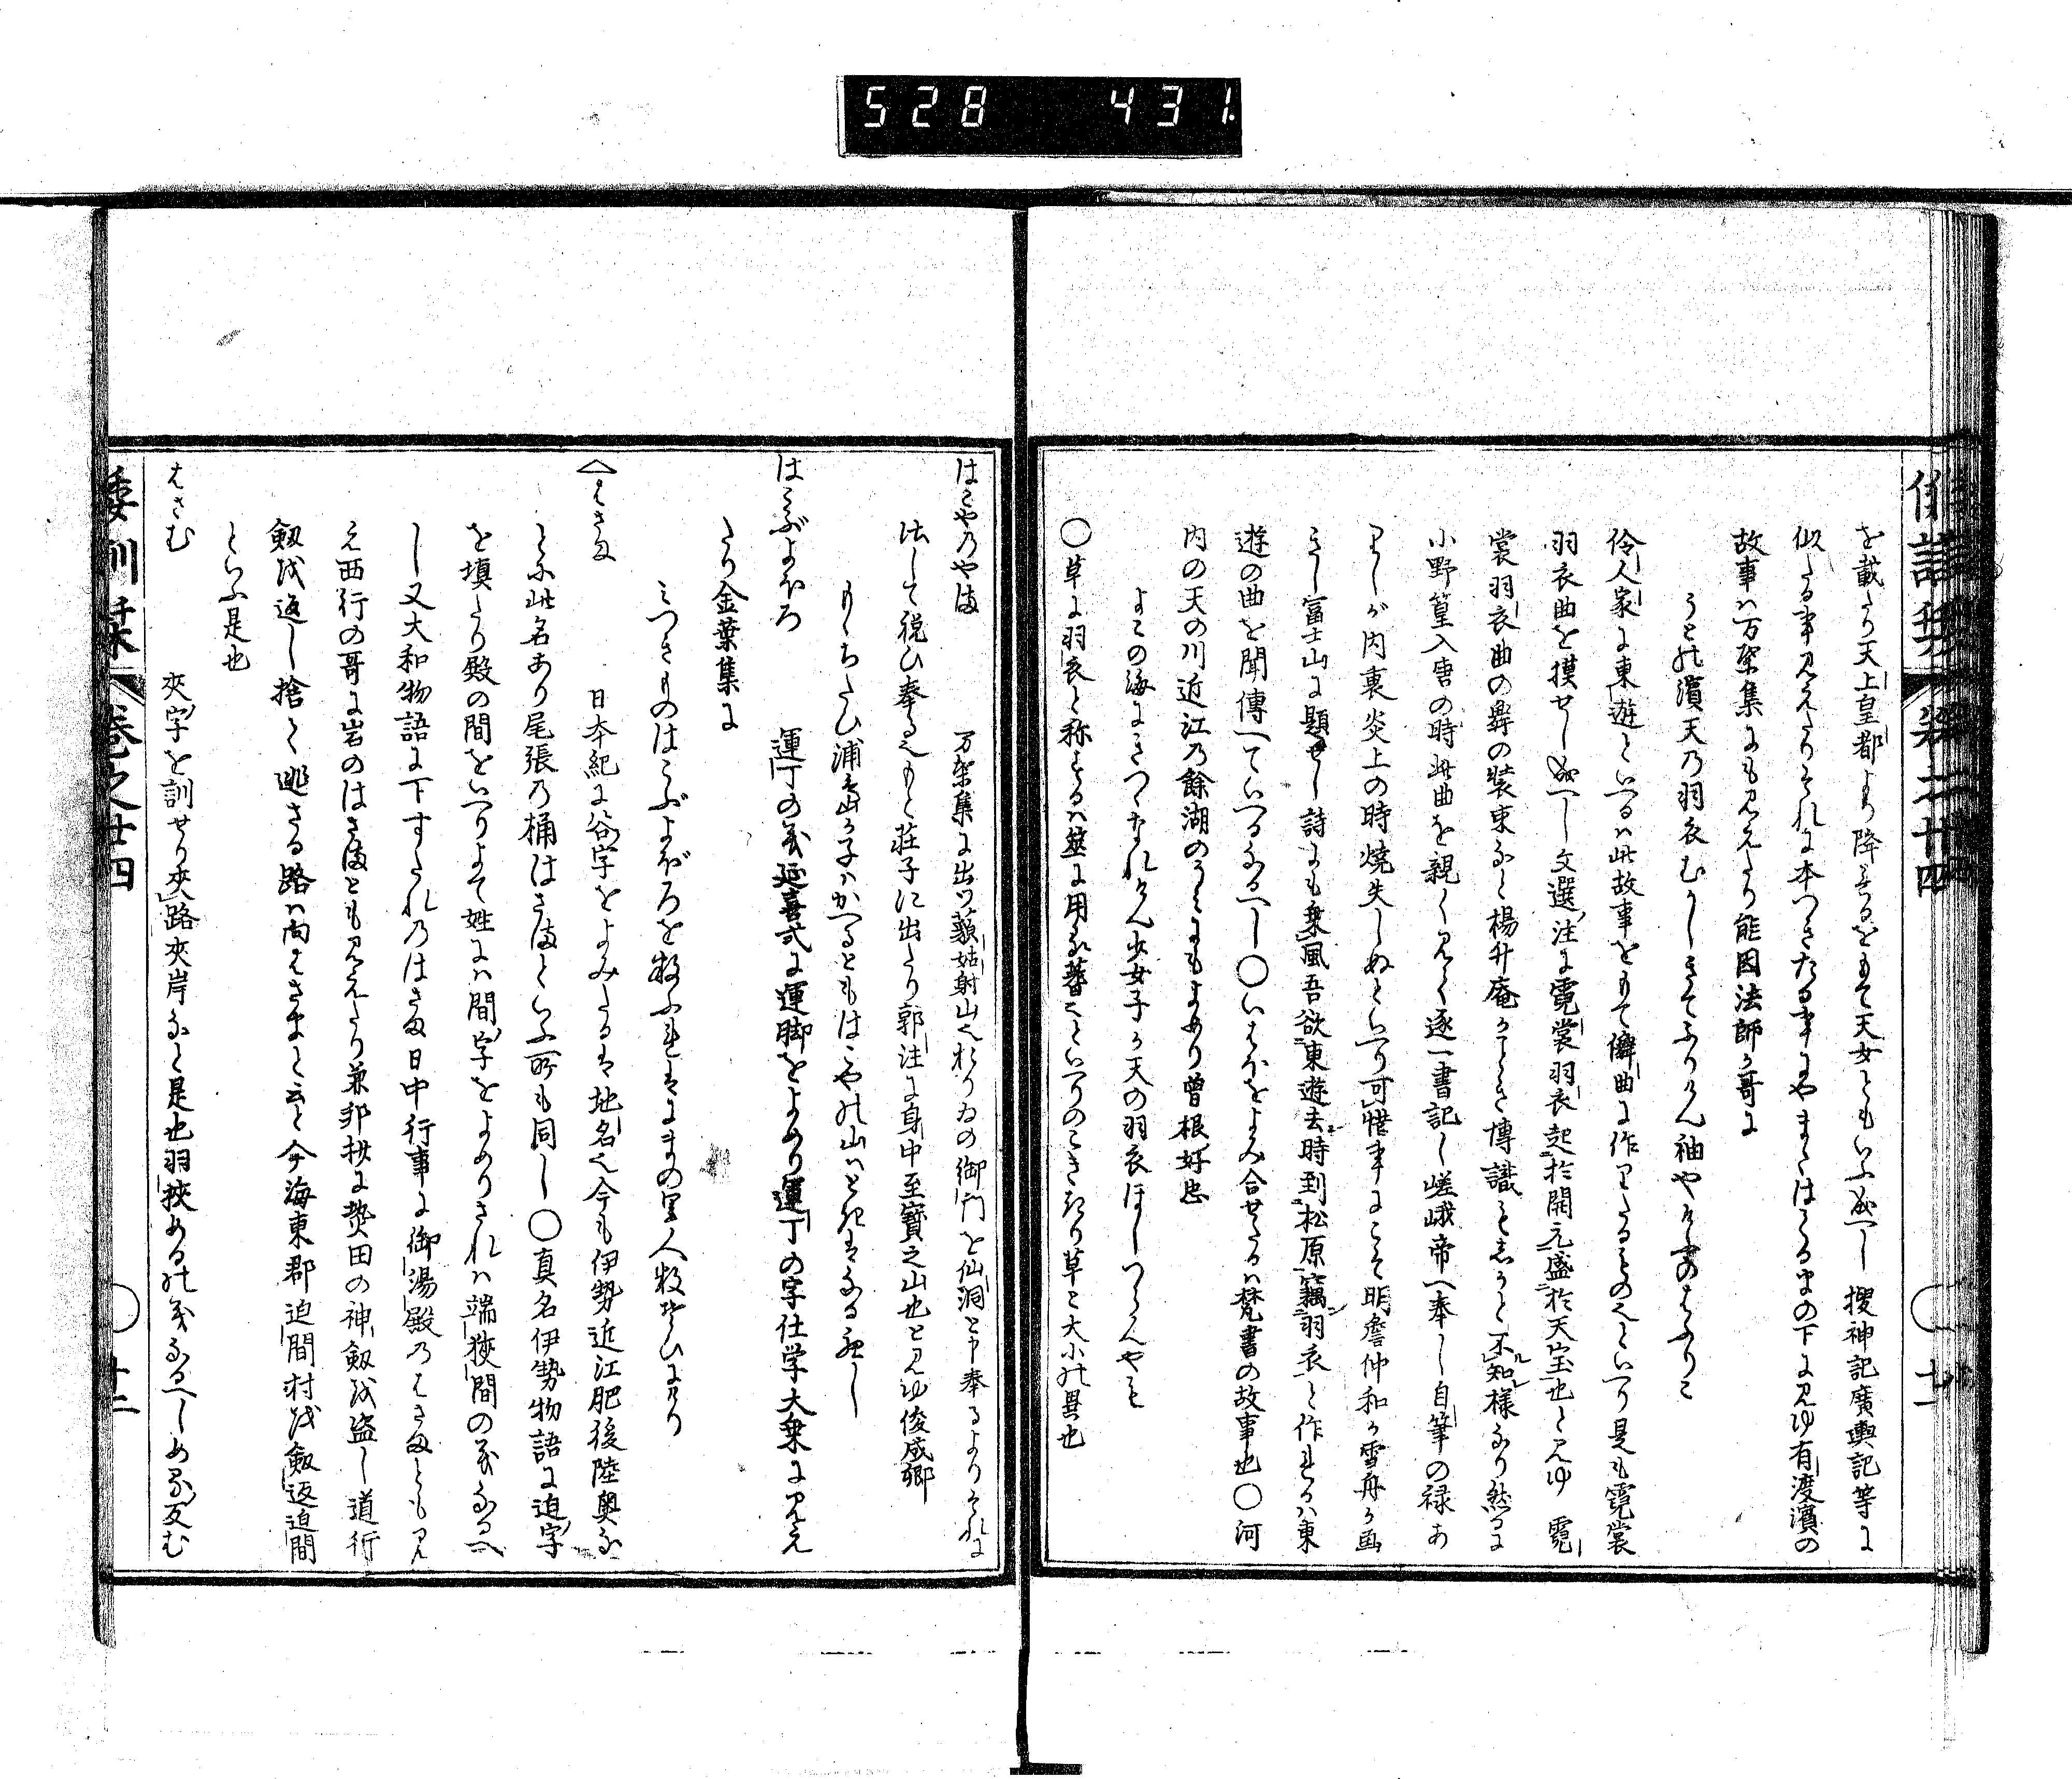 528 431
を載たり天上皇都より降れるをもて天女ともいふ成へし 搜神記廣輿記等に
似たる事見えたりそれに本つきたる事にやまたはくるまの下に見ゆ有渡濱の
故事は万葉集にも見えたり能因法師か哥に
うとの濱天の羽衣むかしきてふりけん袖や
伶人家に東遊といへるは此故事をもて舞曲に作りたるものといへり是も霓裳
羽衣曲を摸せし成へし文選注に霓裳羽衣起於開元盛於天宝也と見ゆ 霓
裳羽衣曲の舞の装束なと楊升庵かことき博識もしかと不知様なり然るに
小野篁入唐の時此曲を親しく見て逐一書記し嵯峨帝へ奉し自筆の禄あ
りしが内裏炎上の時燒失しぬといへり可惜事にこそ明詹仲和か雪舟か画
きし富士山に題せし詩にも乗風吾欲東遊去時到松原竊羽衣と作れるは東
遊の曲を聞傳へていへるなるへし○いはほをよみ合せたるは梵書の故事也○河
内の天の川近江の餘湖のうみにもよめり曾根好忠
よこの海にきつゝなれけん少女子か天の羽衣ほしつらんやそ
○草に羽衣と称するは筮に用る蓍也といへりのこきり草と大小の異也
はこやのやま 万葉集に出つ藐姑射山也おりゐの御門を仙洞と申奉るよりそれに
比して祝ひ奉る也もと荘子に出たり郭注に身中至寶之山也と見ゆ俊成卿
もゝちたひ浦島か子はかへるともはこやの山はときはなるへし
はこぶよほろ 運丁の義延喜式に運脚をよめり運丁の字仕学大乗に見え
たり金葉集に
みつきものはこぶよほろを数ふれはにまの里人数そひにけり
はさま 日本紀に谷字をよみたるは地名也今も伊勢近江肥後陸奥な
とに此名あり尾張の桶はさまといふ所も同し○真名伊勢物語に迫字
を填たり殿の間をいへりよて姓には間字をよめりされは端狹間の義なるへ
し又大和物語に下すたれのはさま日中行事に御湯殿のはさまとも見
え西行の哥に岩のはさまとも見えたり兼邦抄に熱田の神剱を盗し道行
剱を返し捨て逃さる路は尚はさまと云と今海東郡迫間村を剱返迫間
といふ是也
はさむ 夾字を訓せり夾路夾岸なと是也羽挾あるの義なるへしめる反む
倭訓栞 巻之廿四 十二